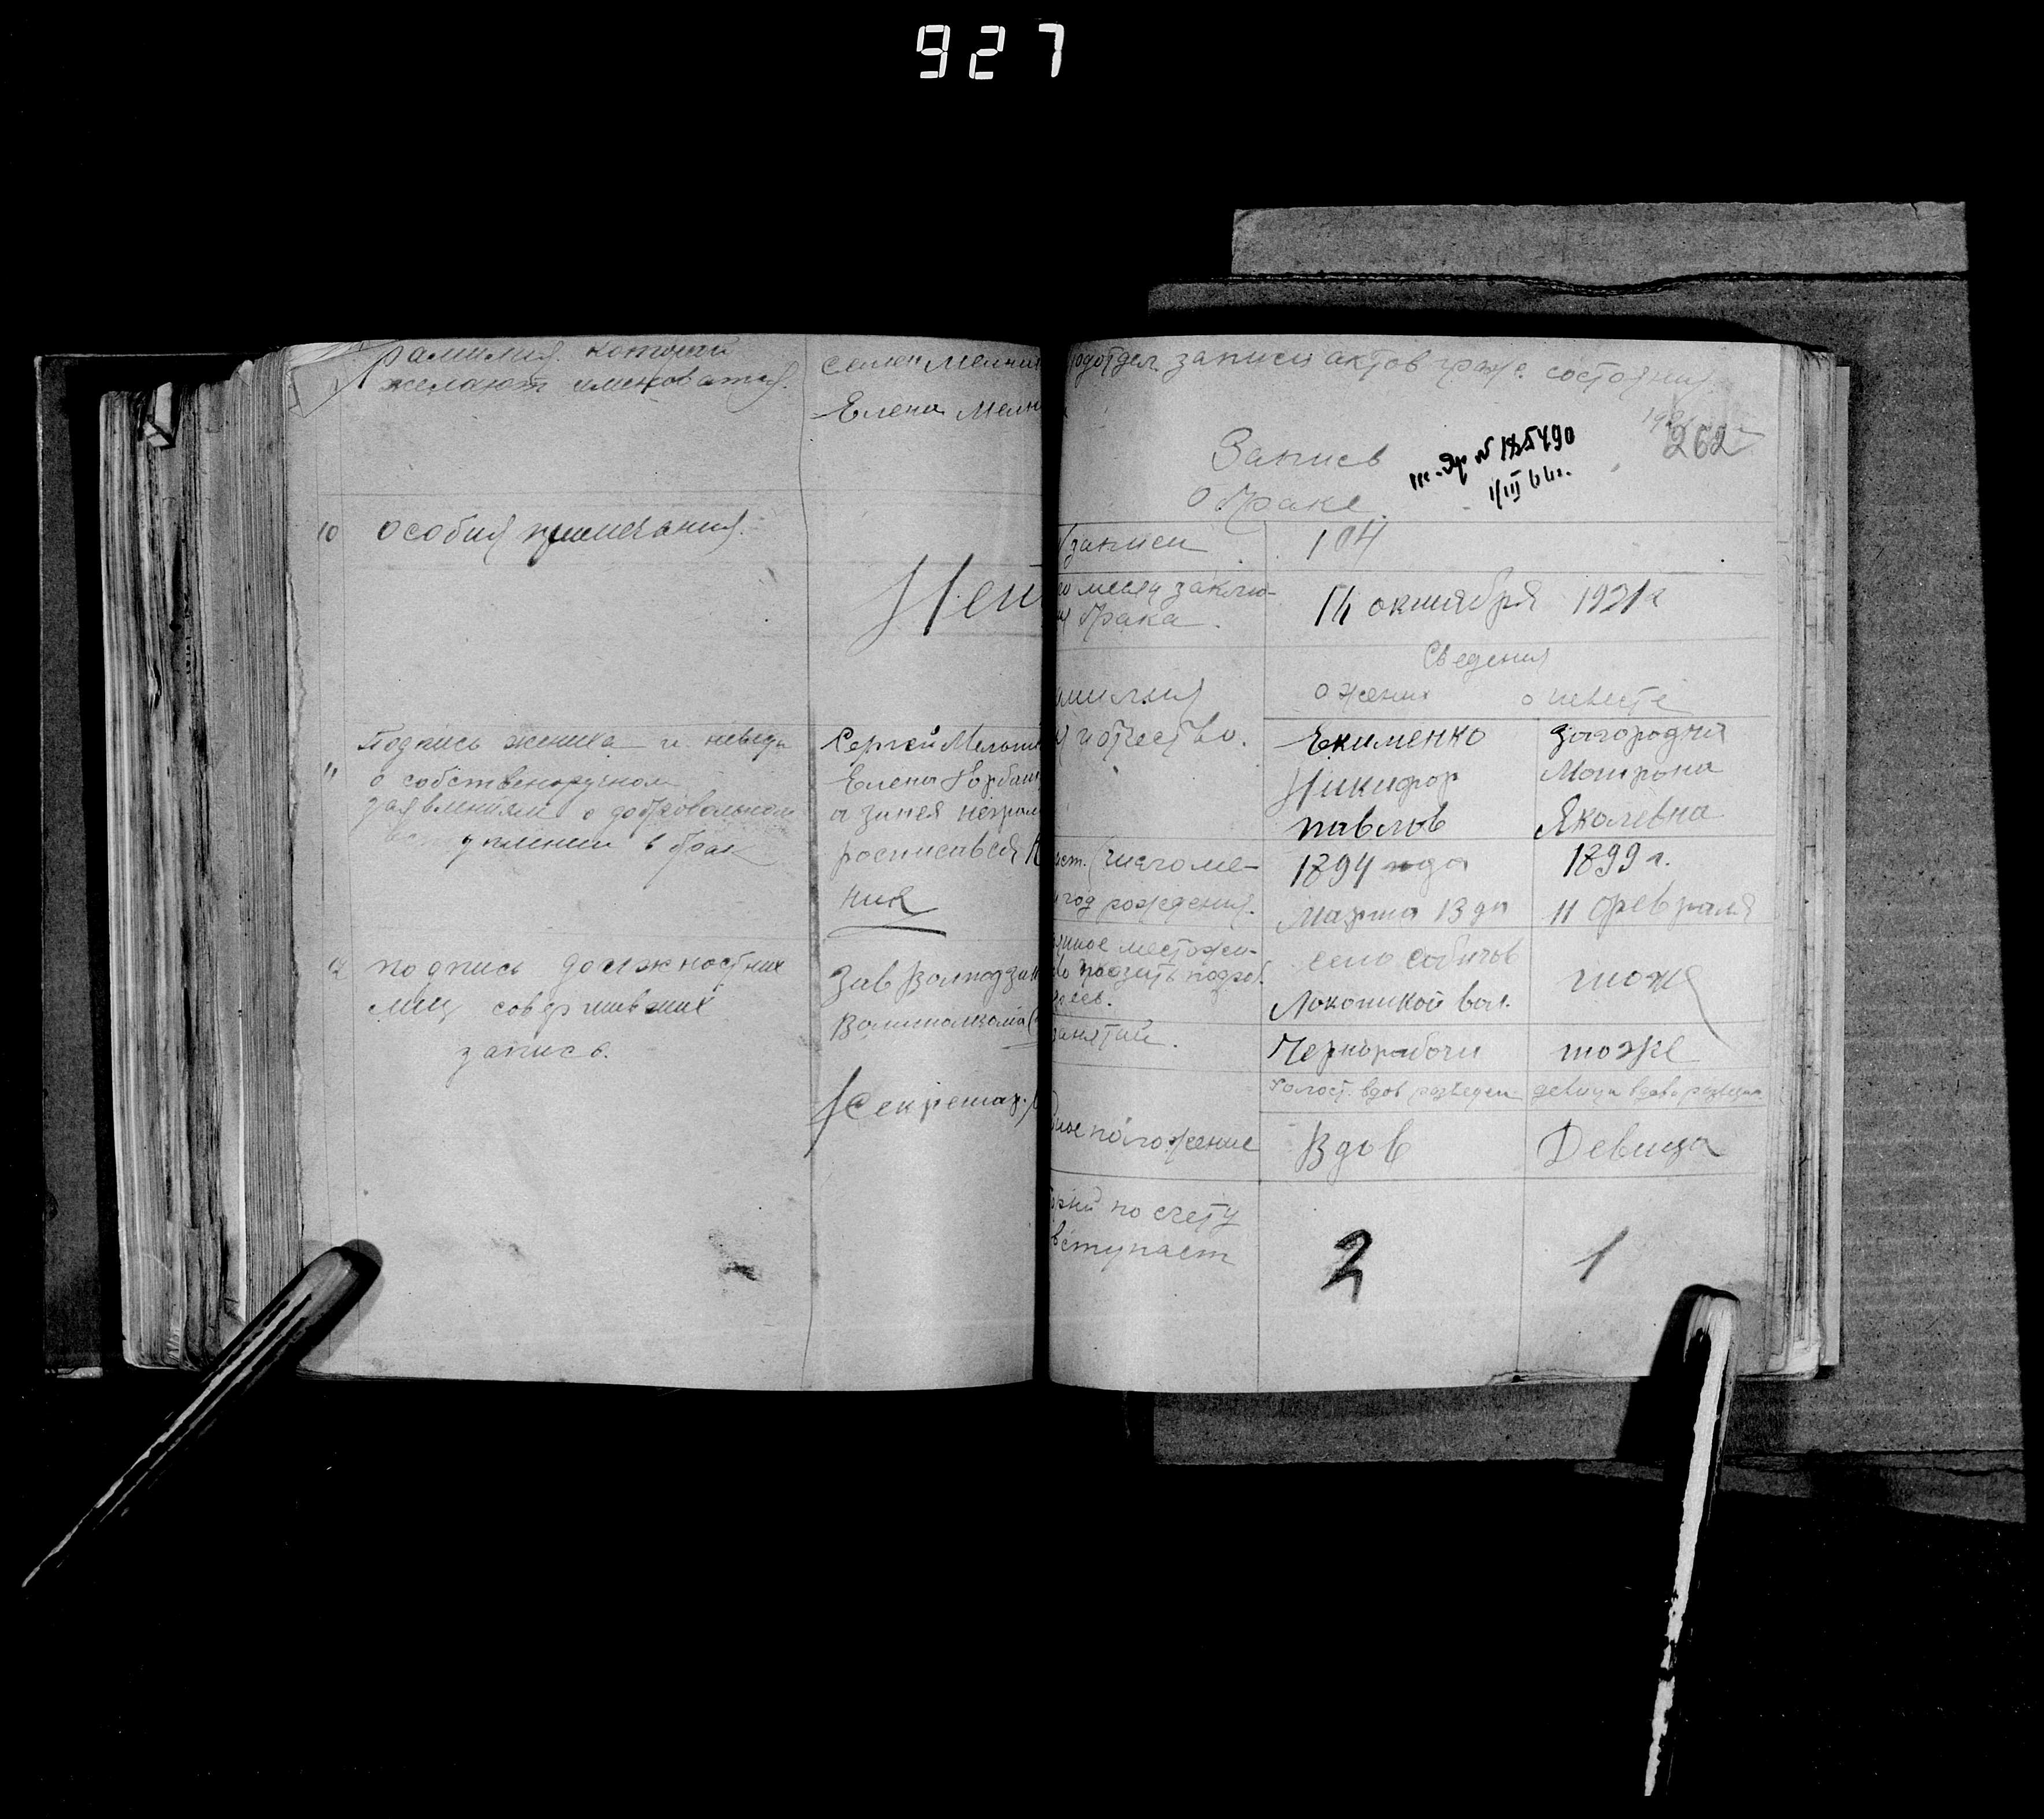 927
Фамилия которой
желают именоватся.
Семен Мелник
Елена Мелн
10 особия примечания.
Нет
11 Подпись жениха и невеси
о собственоручном
заявлением о добровольном
уплении в брак
Сергей Мельни
Елена Горбац
а за нея неграм
росписався К
ник
12 подпись должностних
лиц совершивших
запись.
Зав Волподза
Секретар.
подотдел записи актов граж. состояния
262
Запись
о браке.
185490
1/III 66г.
записи
104
месяц заклю-
брака.
14 октября 1921г
Сведения
о жених
о невесте
амилия
и отчество.
Екименко
Никифор
павлов
Загородня
Мотрона
Яколевна
аст. (число ме-
год рождения.
1894 года
Марта 13 дн
1899 г.
11 февраля
янное местожи-
село собичов
Локоткой вол.
тоже
занятий.
Чернорабочи
тоже
холост. вдов розведен
девица вдова розведена
ное положение
Вдов
Девица
по счету
вступает
2
1